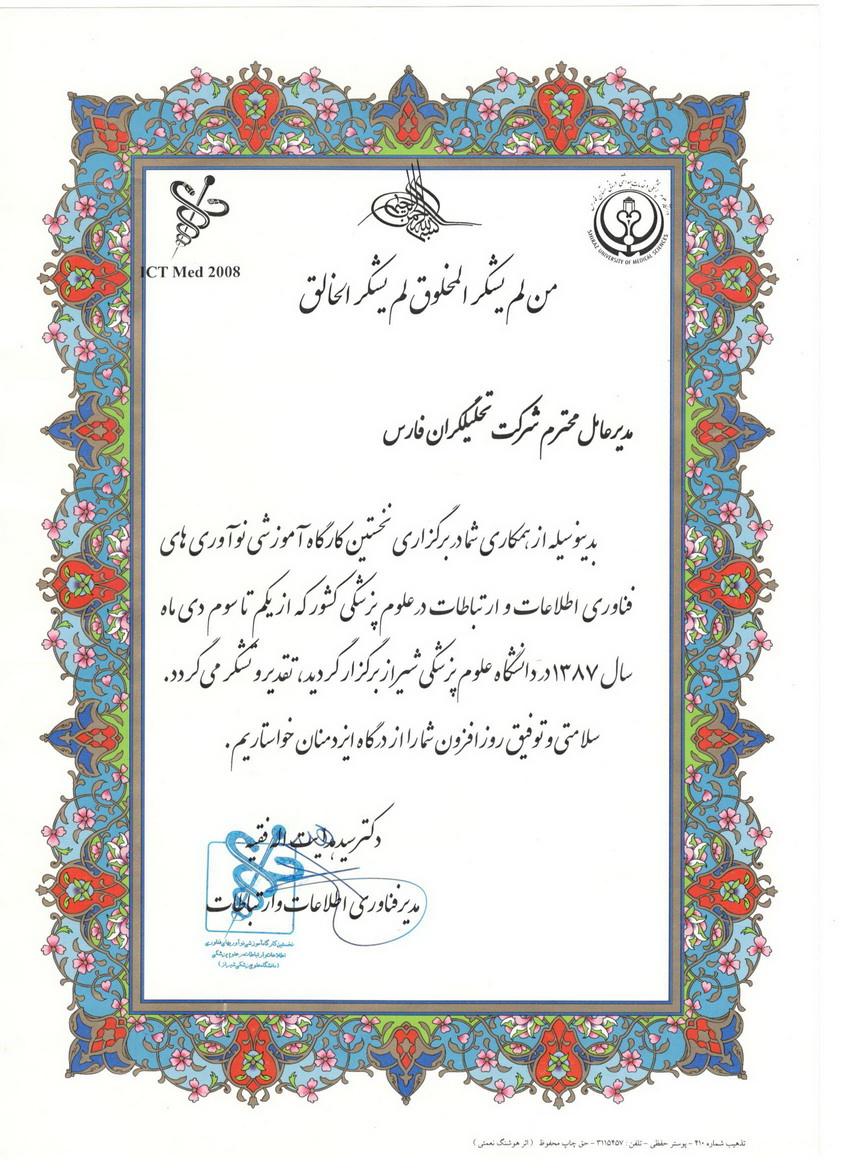 ICT Med 2008
SHIRAZ UNIVERSITY OF MEDICAL SCIENCES
من لم یشکر المخلوق لم یشکر الخالق
مدیرعامل محترم شرکت تحلیلگران فارس
بدینوسیله از همکاری شما در برگزاری نخستین کارگاه آموزشی نوآوری های
فناوری اطلاعات و ارتباطات در علوم پزشکی کشور که از یکم تا سوم دی ماه
سال ۱۳۸۷ در دانشگاه علوم پزشکی شیراز برگزار گردید، تقدیر و تشکر می گردد.
سلامتی و توفیق روزافزون شما را از درگاه ایزد منان خواستاریم.
دکتر سید هدایت اله فقیه
مدیر فناوری اطلاعات و ارتباطات
نخستین کارگاه آموزشی نوآوریهای فناوری
اطلاعات و ارتباطات در علوم پزشکی
(دانشگاه علوم پزشکی شیراز)
تذهیب شماره ۴۱۰ - پوستر حفظی - تلفن: ۳۱۱۵۴۵۷ - حق چاپ محفوظ (اثر هوشنگ نعمتی)